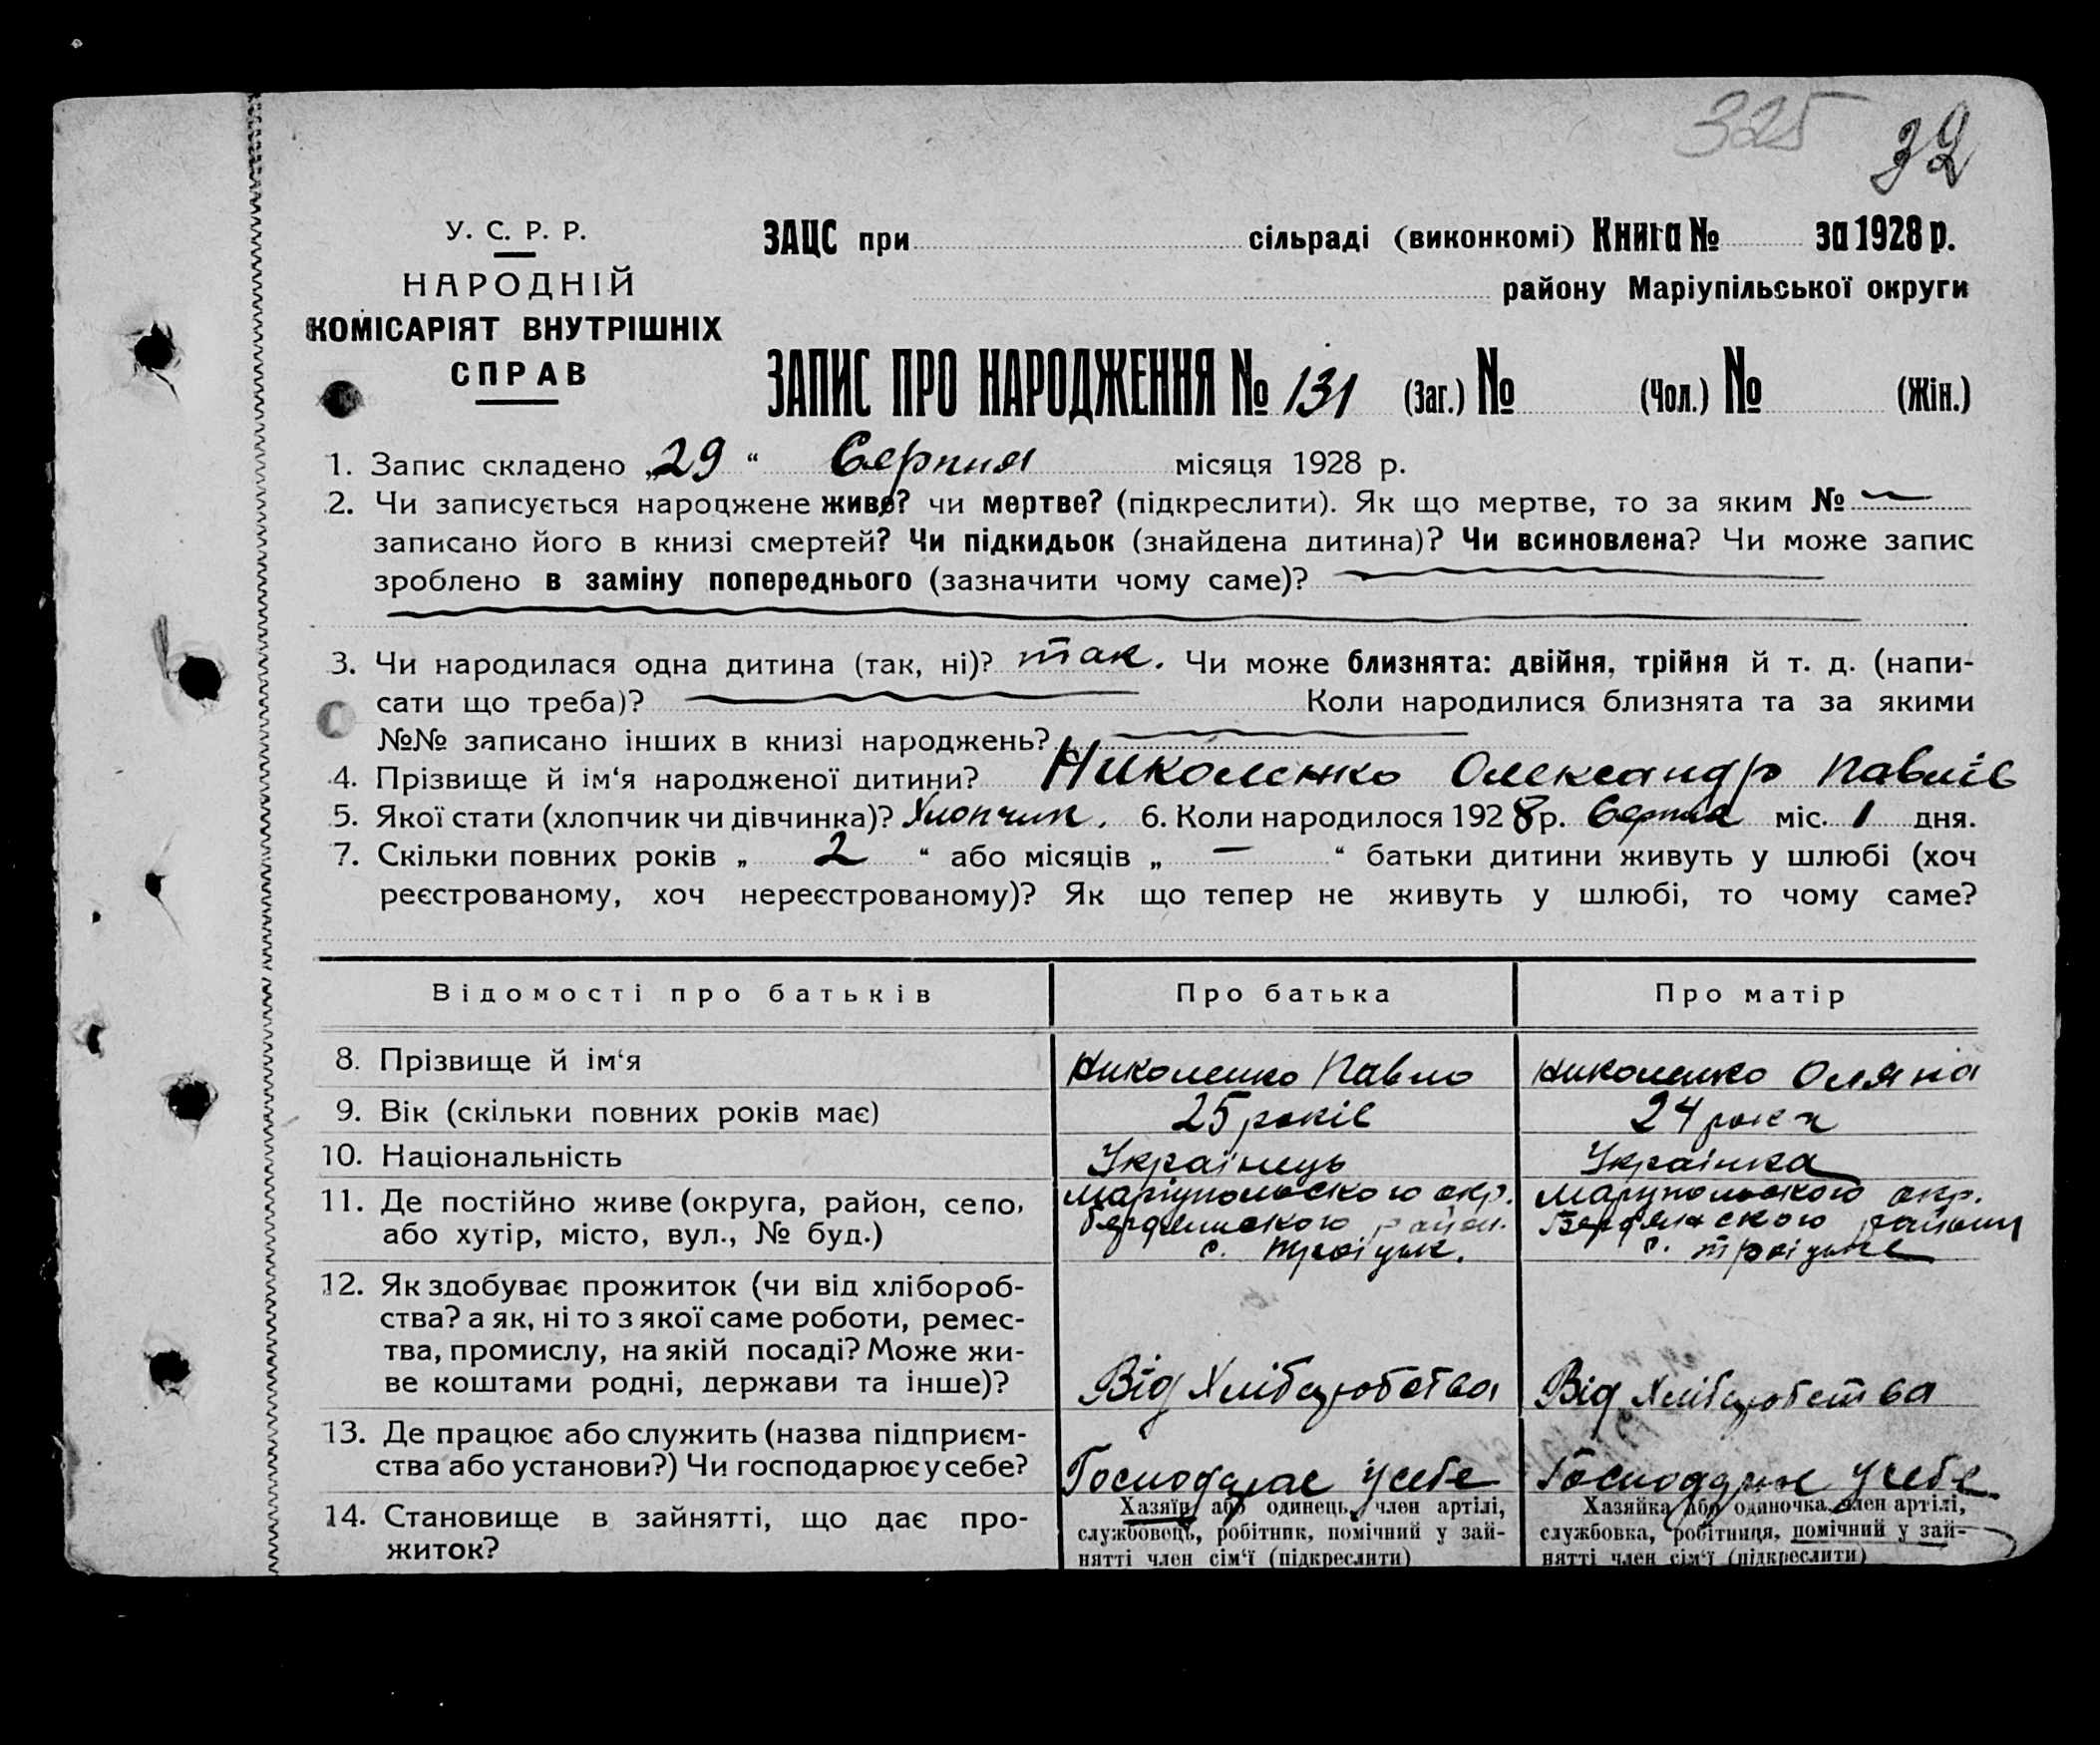 325
32
У. С. Р. Р.
НАРОДНІЙ
КОМІСАРІЯТ ВНУТРІШНІХ
СПРАВ
ЗАЦС при сільраді (виконкомі) Книга № за 1928 р.
району Маріупільської округи
ЗАПИС ПРО НАРОДЖЕННЯ № 131 (Заг.) № (Чол.) № (Жін.)
1. Запис складено „29“ Серпня місяця 1928 р.
2. Чи записується народжене живе? чи мертве? (підкреслити). Як що мертве, то за яким № —
записано його в книзі смертей? Чи підкидьок (знайдена дитина)? Чи всиновлена? Чи може запис
зроблено в заміну попереднього (зазначити чому саме)?
3. Чи народилася одна дитина (так, ні)? так. Чи може близнята: двійня, трійня й т. д. (напи-
сати що треба)? Коли народилися близнята та за якими
№№ записано інших в книзі народжень?
4. Прізвище й ім‘я народженої дитини? Николенко Олександр Павлів
5. Якої стати (хлопчик чи дівчинка)? Хлопчик. 6. Коли народилося 1928 р. Серпня міс. 1 дня.
7. Скільки повних років „ 2 “ або місяців „ — “ батьки дитини живуть у шлюбі (хоч
реєстрованому, хоч нереєстрованому)? Як що тепер не живуть у шлюбі, то чому саме?
Відомості про батьків Про батька Про матір
8. Прізвище й ім‘я Николенко Павло Николенко Оляна
9. Вік (скільки повних років має) 25 років 24 роки
10. Національність Українець Українка
11. Де постійно живе (округа, район, село,
або хутір, місто, вул., № буд.)
Маріупольского окр.
Бердянского район.
с. Троіцьк.
Марупольского окр.
Бердянского району
с. Троіцьке
12. Як здобуває прожиток (чи від хлібороб-
ства? а як, ні то з якої саме роботи, ремес-
тва, промислу, на якій посаді? Може жи-
ве коштами родні, держави та інше)?
Від Хліборобства
Від Хліборобства
13. Де працює або служить (назва підприєм-
ства або установи?) Чи господарює у себе?
Господарює у себе
Господарює у себе
14. Становище в зайнятті, що дає про-
житок?
Хазяїн або одинець, член артілі,
службовець, робітник, помічний у зай-
нятті член сім‘ї (підкреслити)
Хазяйка або одиночка, член артілі,
службовка, робітниця, помічний у зай-
нятті член сім‘ї (підкреслити)